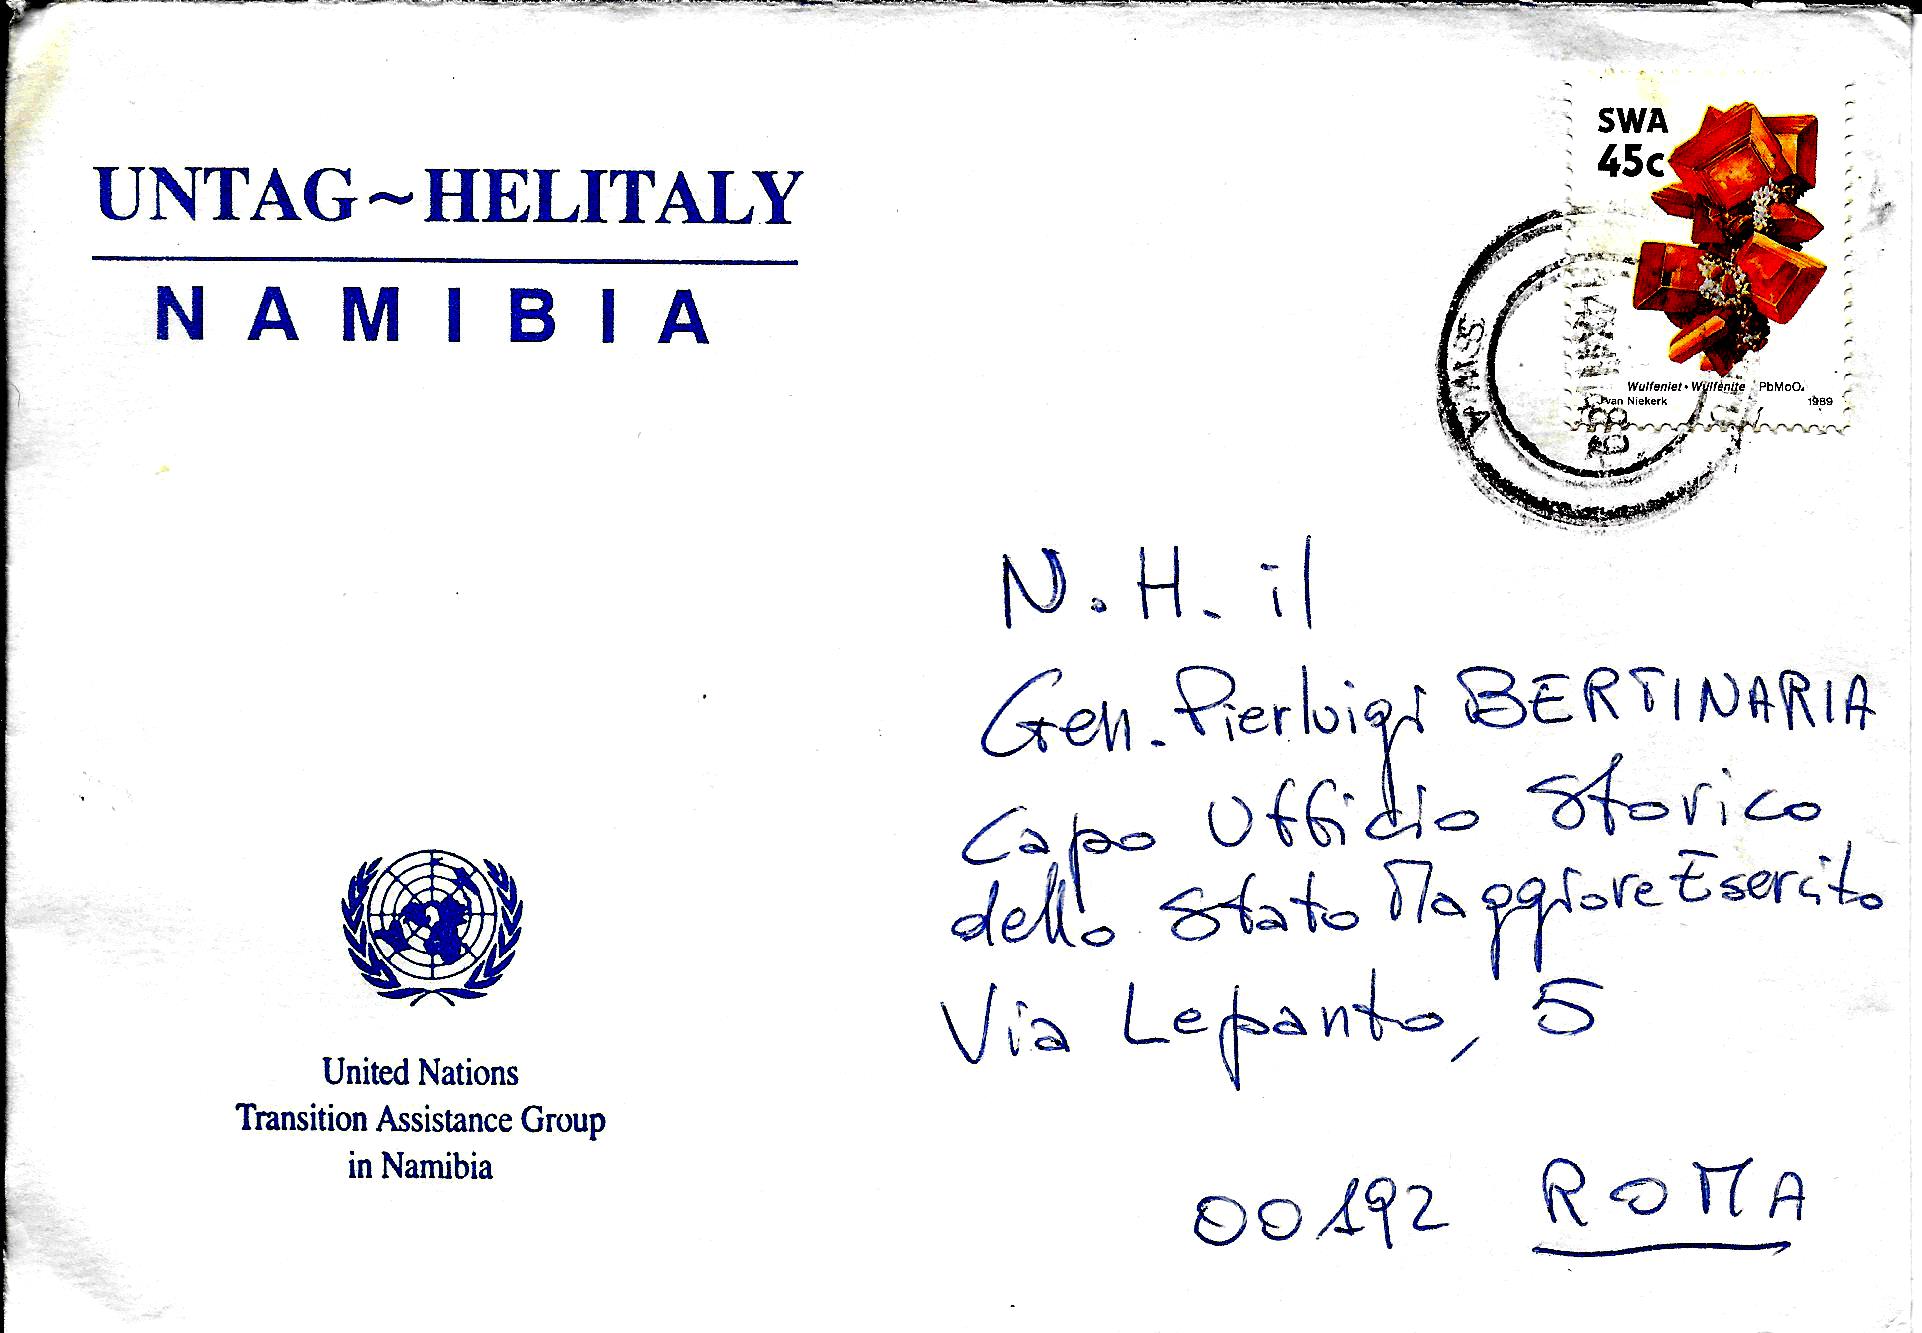 UNTAG~HELITALY
NAMIBIA
SWA
45c
Wulfeniet • Wulfenite PbMoO₄
van Niekerk
1989
SWA
N.H. il
Gen. Pierluigi BERTINARIA
Capo Ufficio Storico
dello Stato Maggiore Esercito
Via Lepanto, 5
00192 ROMA
United Nations
Transition Assistance Group
in Namibia